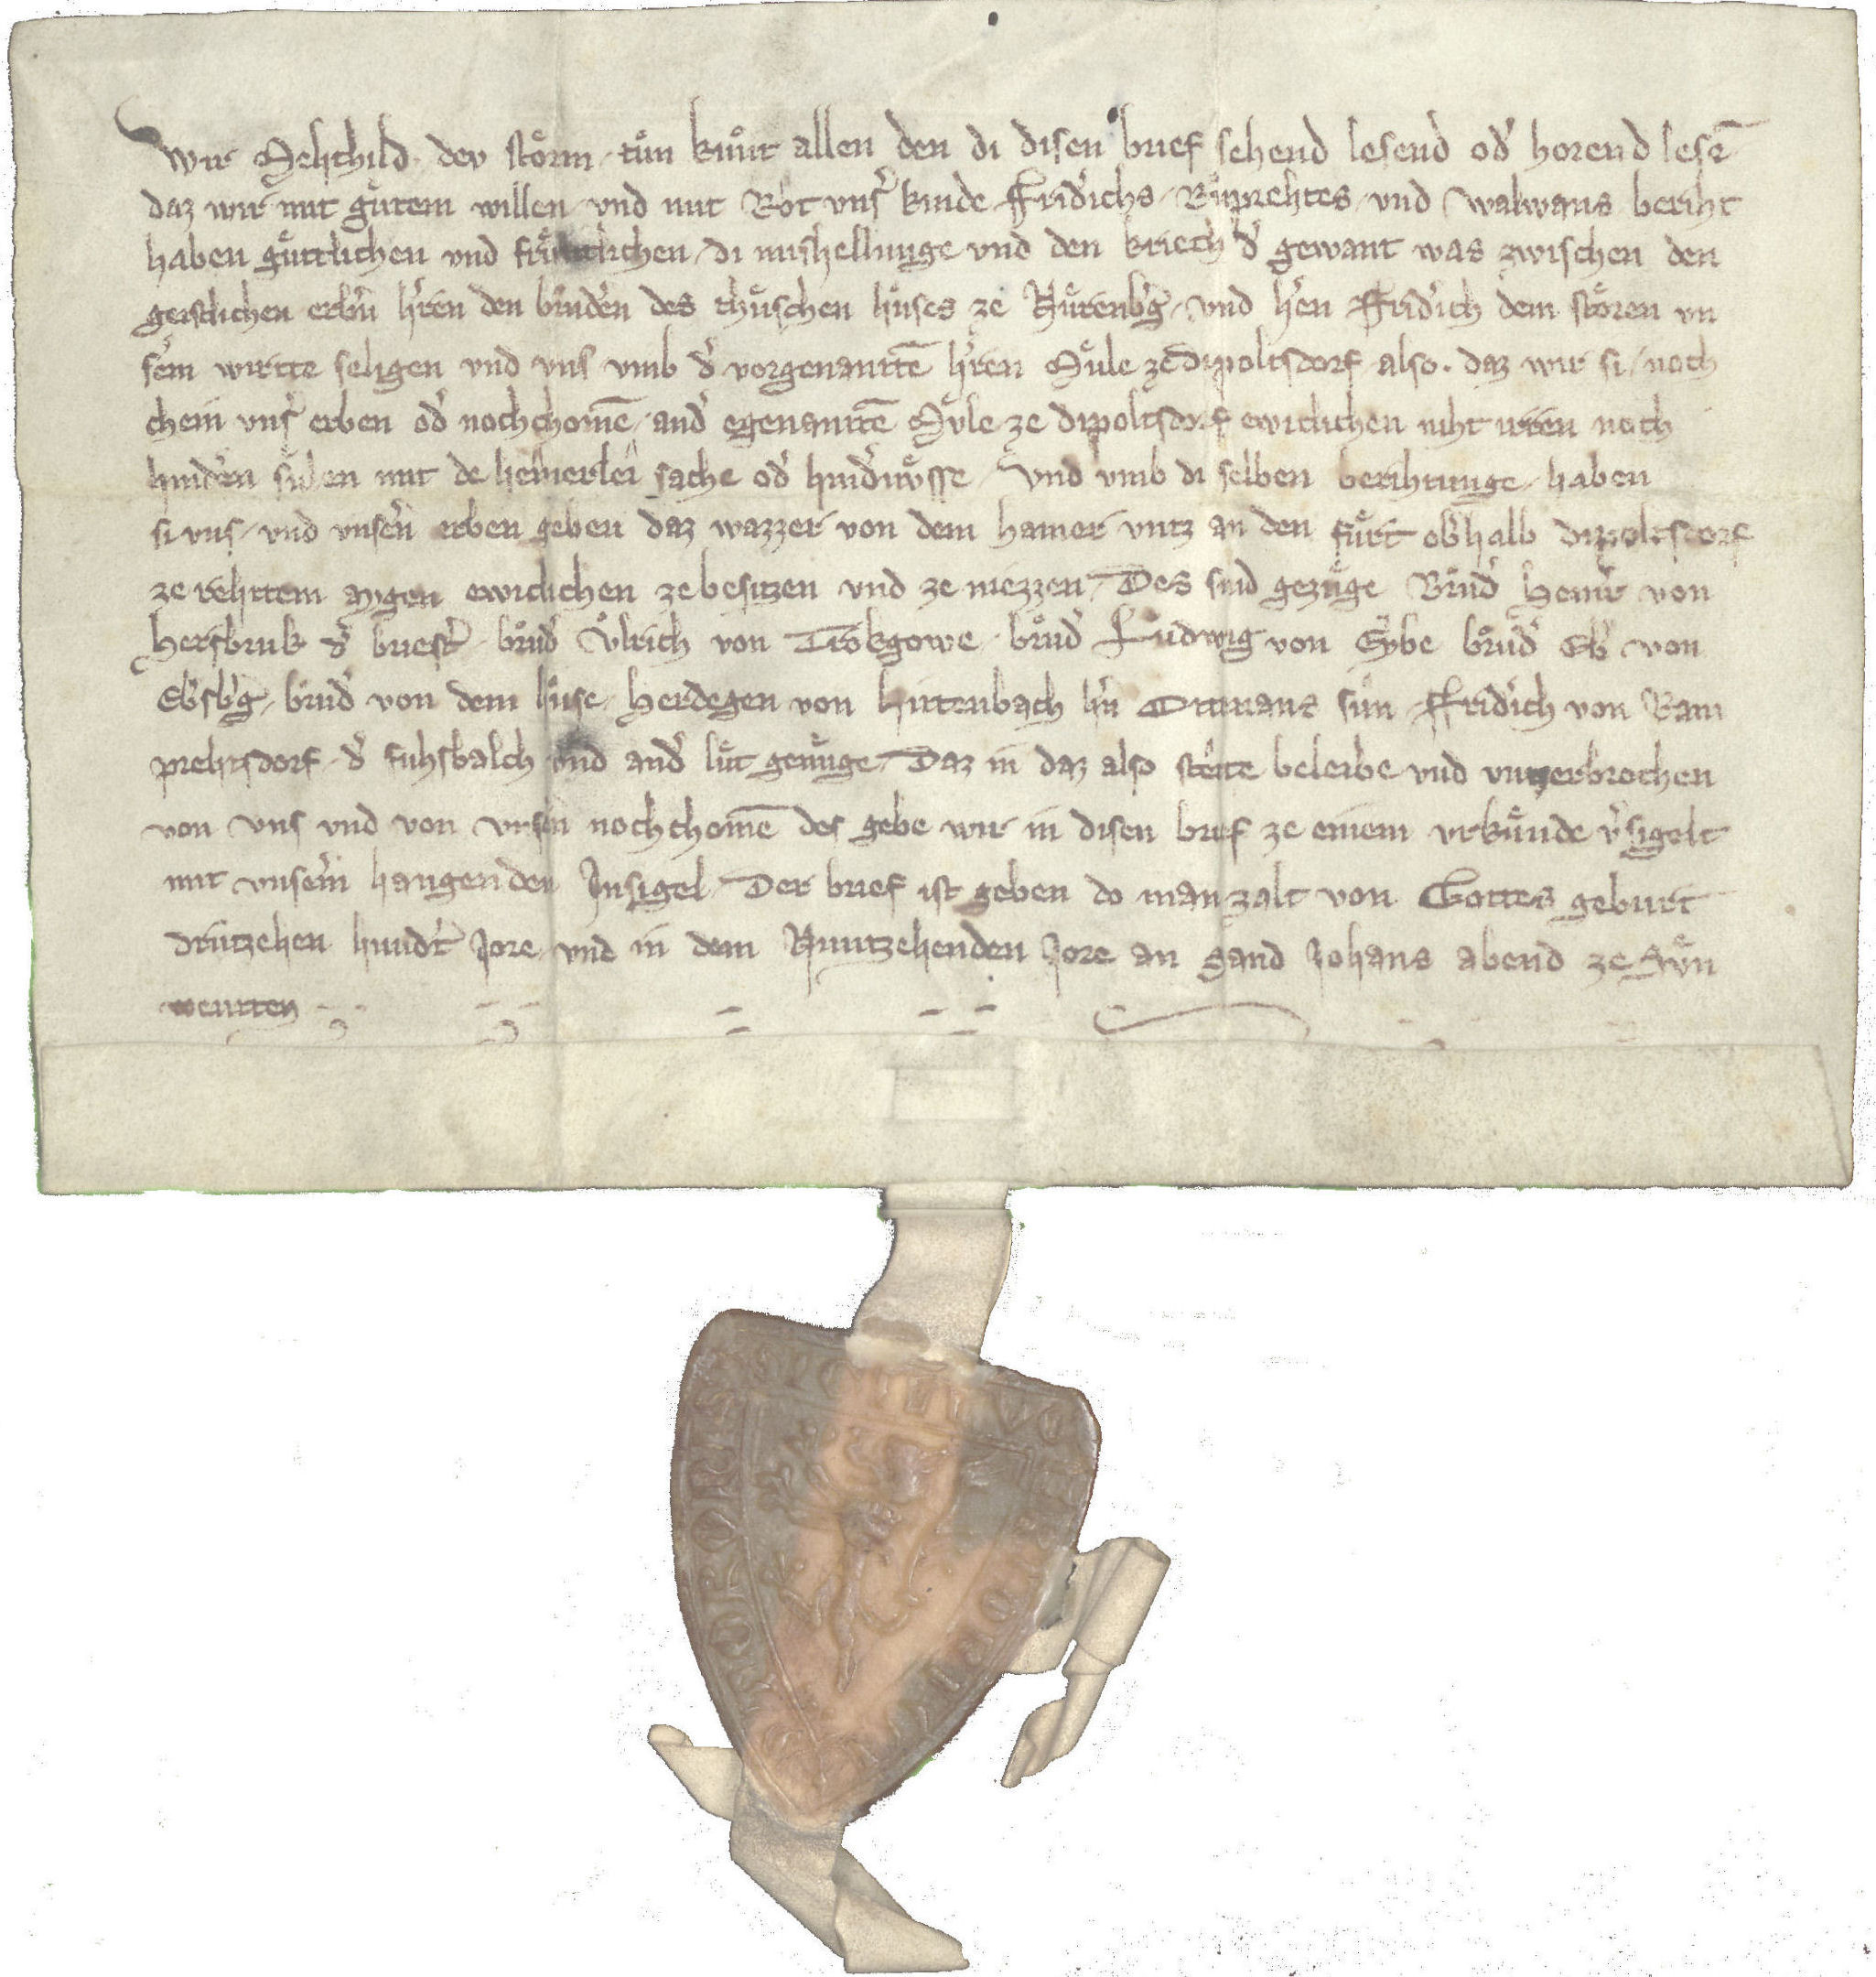 Wir Mehthild. dev stoͤrin tuͤn kuͤnt allen den di disen brief sehend lesend od' horend lesē
daz wir mit guͤtem willen vnd mit Rot vns' kinde Frid'ichs, Ruͤprehtes, vnd Walwans beriht
haben guͤtlichen vnd fruͤntlichen, di mishellunge vnd den kriech d' gewant was zwischen den
geistlichen erb'n h'ren den bruͤd'en des thuͤschen huͤses ze Nuͤrenb'g, vnd h'en Frid'ich dem stoͤren vn
s'em wirtte seligen vnd vns vmb d' vorgenantē h'ren Muͤle ze dipoltsdorf also. daz wir si, noch
chein vns' erben od' nochchomē, and' egenantē Muͤle ze dipoltsdorf ewiclichen niht irren noch
hind'en suͤlen mit de heinerlei sache od' hind'nuͤsse, Vnd vmb di selben berihtunge, haben
si vns, vnd vns'en erben geben daz wazzer von dem hamer vntz an den fuͤrt ob'halb dipoltsdorf
ze rehttem aygen ewiclichen ze besitzen vnd ze niezzen, Des sind gezuͤge Bruͤd' Heinr' von
Hersbruk d' briest', bruͤd' Vͦlrich von Trokgowe, bruͤd' Luͦdwig von Eybe bruͤd' Eb' von
Eb'sb'g, bruͤd' von dem huͤse, Herdegen von hirtenbach h'n Ottnans suͤn Frid'ich von Ram
prehtsdorf, d' fuhsbalch vnd and' luͤt genuͤge, Daz in daz also stete beleibe vnd vnzerbrochen
von vns vnd von vnsn nochchomē des gebe wir in disen brief ze einem vrkuͤnde v'sigelt
mit vnserm hangenden Jnsigel, Der brief ist geben do man zalt von Gottes geburt
driutzehen hund't Jore, vnd in dem Niuntzehenden Jore an sand Johans abend ze Suͤn
wentten